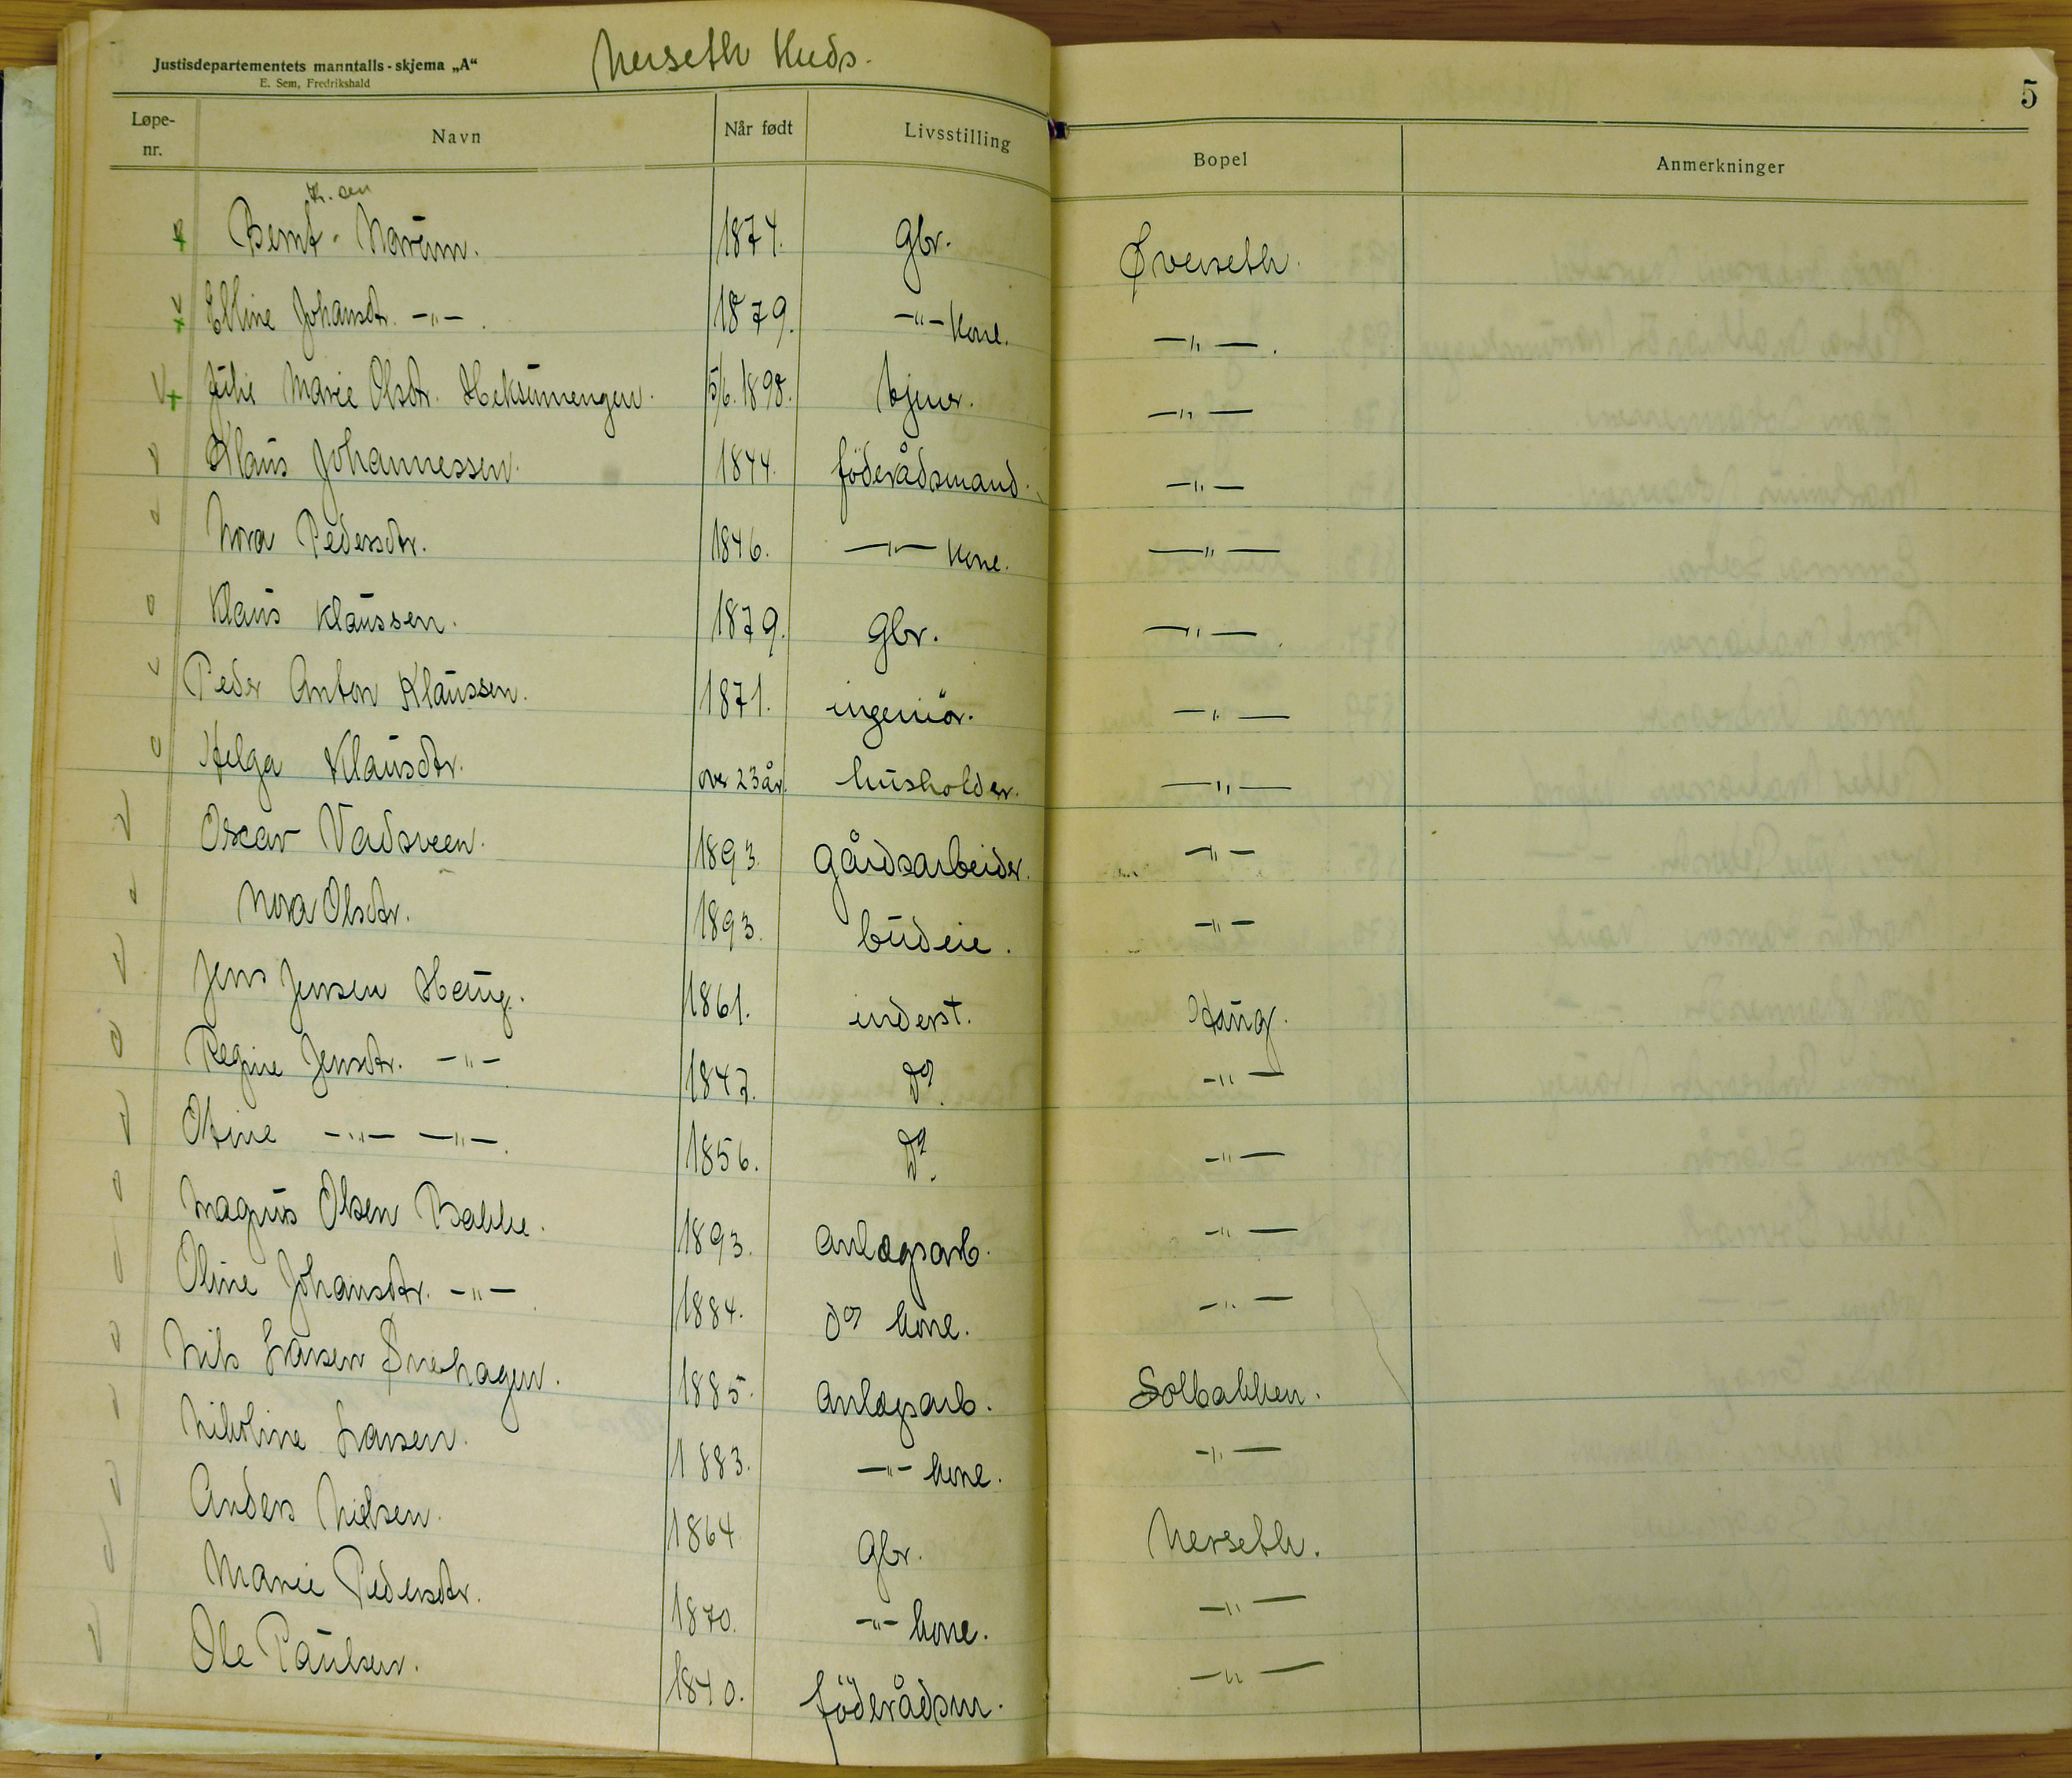 Justisdepartementets manntalls-skjema „A“
E. Sem, Fredrikshald
Nerseth Kreds.
5
Løpe-nr. Navn Når født Livsstilling Bopel Anmerkninger
Bernt Narum. 1874. gbr. Øverseth.
Elline Johansdtr. -"- 1879. -"- kone. -"-
Julie Marie Olsdtr. Heksumengen. 5/6. 1898. tjener. -"-
Klaus Johannessen. 1844. föderådsmand. -"-
Nora Pedersdtr. 1846. -"- kone. -"-
Klaus Klaussen. 1879. gbr. -"-
Peder Anton Klaussen. 1871. ingeniör. -"-
Helga Klausdtr. over 23 år. husholder. -"-
Oscar Vadsveen. 1893. gårdsarbeider. -"-
Nora Olsdtr. 1893. budeie. -"-
Jens Jensen Haug. 1861. inderst. Haug.
Regine Jensdtr. -"- 1847. Do. -"-
Oline -"- -"- 1856. Do. -"-
Magnus Olsen Bakke. 1893. anlægsarb. -"-
Oline Johansdtr. -"- 1884. do kone. -"-
Nils Larsen Ørnehagen. 1885. anlægsarb. Solbakken.
Nikoline Larsen. 1883. -"- kone. -"-
Anders Nielsen. 1864. gbr. Nerseth.
Marie Pedersdtr. 1870. -"- kone. -"-
Ole Paulsen. 1840. föderådsm. -"-